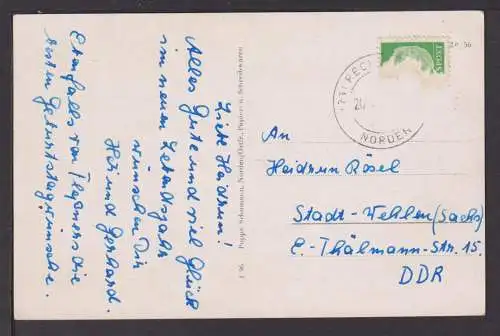 Liebe Heidrun!
Alles Gute und viel Glück
im neuen Lebensjahr
wünschen Dir
Ili und Gerhard.
Ebenfalls von Theaners die
besten Geburtstagswünsche.
J 96 Poppe Schumann, Norden/Ostfr., Papier- u. Schreibwaren
NORDEN
An
Heidrun Rösel
Stadt-Wehlen (Sachs)
E.-Thälmann-Str. 15.
DDR